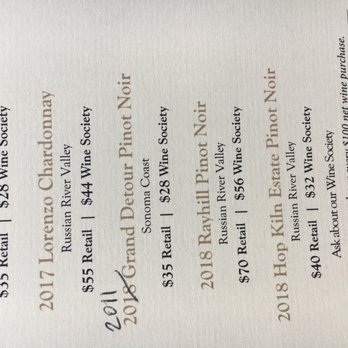 $35 Retail | $28 Wine Society
2017 Lorenzo Chardonnay
Russian River Valley
$55 Retail | $44 Wine Society
2011
2018 Grand Detour Pinot Noir
Sonoma Coast
$35 Retail | $28 Wine Society
2018 Rayhill Pinot Noir
Russian River Valley
$70 Retail | $56 Wine Society
2018 Hop Kiln Estate Pinot Noir
Russian River Valley
$40 Retail | $32 Wine Society
Ask about our Wine Society
$100 net wine purchase.